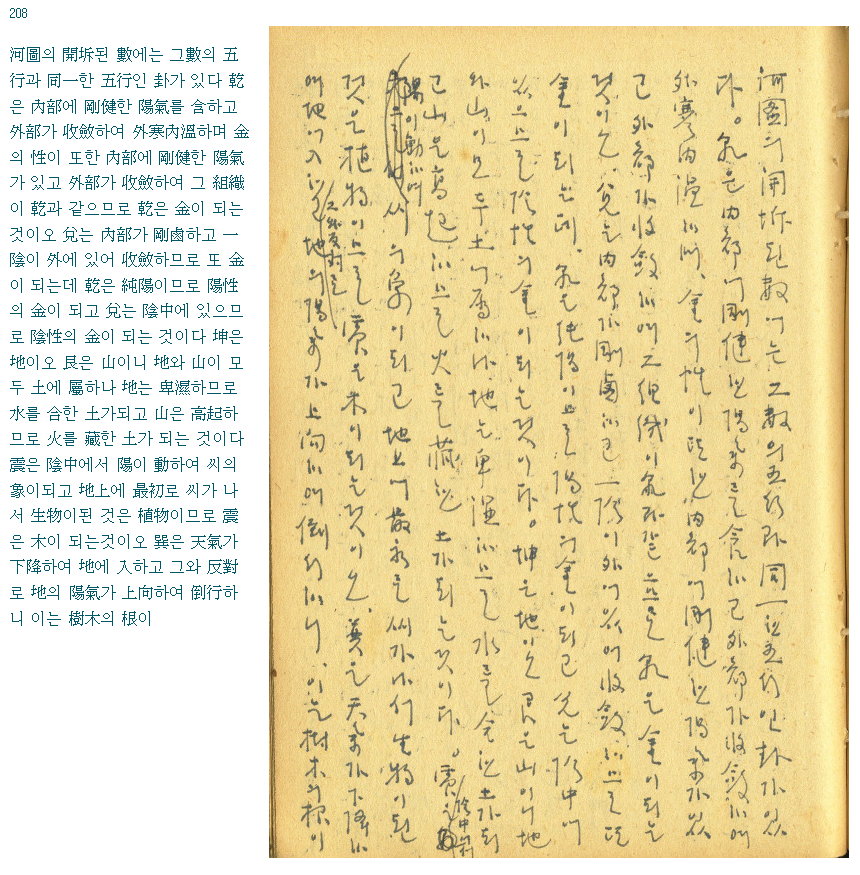 208
河圖의 開坼된 數에는 그數의 五
行과 同一한 五行인 卦가 있다 乾
은 內部에 剛健한 陽氣를 含하고
外部가 收斂하여 外寒內溫하며 金
의 性이 또한 內部에 剛健한 陽氣
가 있고 外部가 收斂하여 그 組織
이 乾과 같으므로 乾은 金이 되는
것이오 兌는 內部가 剛鹵하고 一
陰이 外에 있어 收斂하므로 또 金
이 되는데 乾은 純陽이므로 陽性
의 金이 되고 兌는 陰中에 있으므
로 陰性의 金이 되는 것이다 坤은
地이오 艮은 山이니 地와 山이 모
두 土에 屬하나 地는 卑濕하므로
水를 含한 土가되고 山은 高起하
므로 火를 藏한 土가 되는 것이다
震은 陰中에서 陽이 動하여 씨의
象이되고 地上에 最初로 씨가 나
서 生物이된 것은 植物이므로 震
은 木이 되는것이오 巽은 天氣가
下降하여 地에 入하고 그와 反對
로 地의 陽氣가 上向하여 倒行하
니 이는 樹木의 根이
河圖의 開坼된 數에는 그 數의 五行과 同一한 五行인 卦가 있
다。乾은 內部에 剛健한 陽氣를 含하고 外部가 收斂하여
外寒內溫하며、金의 性이 또한 內部에 剛健한 陽氣가 있
고 外部가 收斂하여 그 組織이 乾과 같으므로 乾은 金이 되는
것이오、兌는 內部가 剛鹵하고 一陰이 外에 있어 收斂하므로 또
金이 되는데、乾은 純陽이므로 陽性의 金이 되고 兌는 陰中에
있으므로 陰性의 金이 되는 것이다。坤은 地이오 艮은 山이니 地
와 山이 모두 土에 屬하나 地는 卑濕하므로 水를 含한 土가 되
고 山은 高起하므로 火를 藏한 土가 되는 것이다。震은 陰中에서
陽이 動하여 씨의 象이 되고 地上에 最初로 씨가 나서 生物이 된
것은 植物이므로 震은 木이 되는 것이오、巽은 天氣가 下降하
여 地에 入하고 그와 反對로 地의 陽氣가 上向하여 倒行하니、이는 樹木의 根이